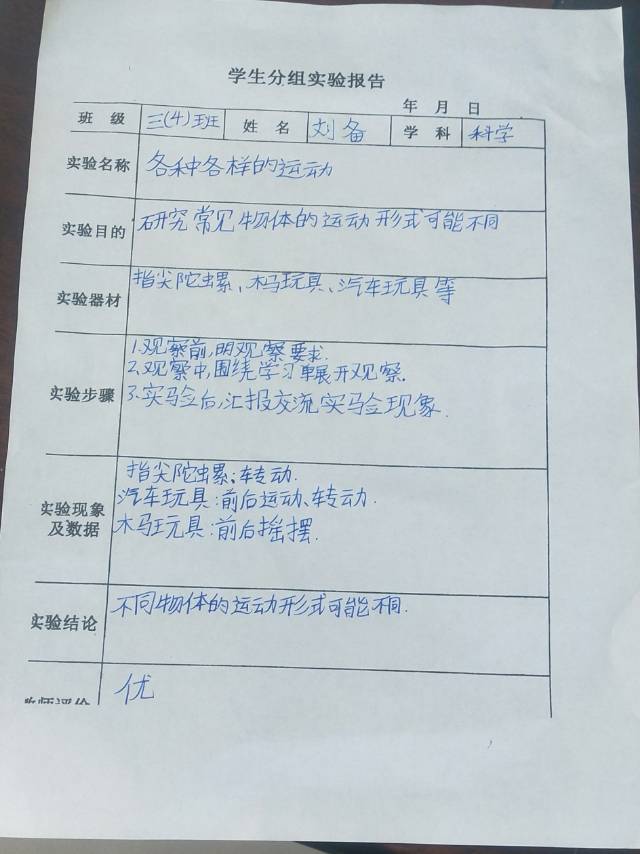 学生分组实验报告
年 月 日
班 级 三(4)班 姓 名 刘备 学 科 科学
实验名称 各种各样的运动
实验目的 研究常见物体的运动形式可能不同
实验器材 指尖陀螺、木马玩具、汽车玩具等
1.观察前,明观察要求.
2.观察中,围绕学习单展开观察.
实验步骤 3.实验后,汇报交流实验现象.
指尖陀螺:转动.
实验现象 汽车玩具:前后运动、转动.
及数据 木马玩具:前后摇摆.
实验结论 不同物体的运动形式可能不同.
教师评价 优